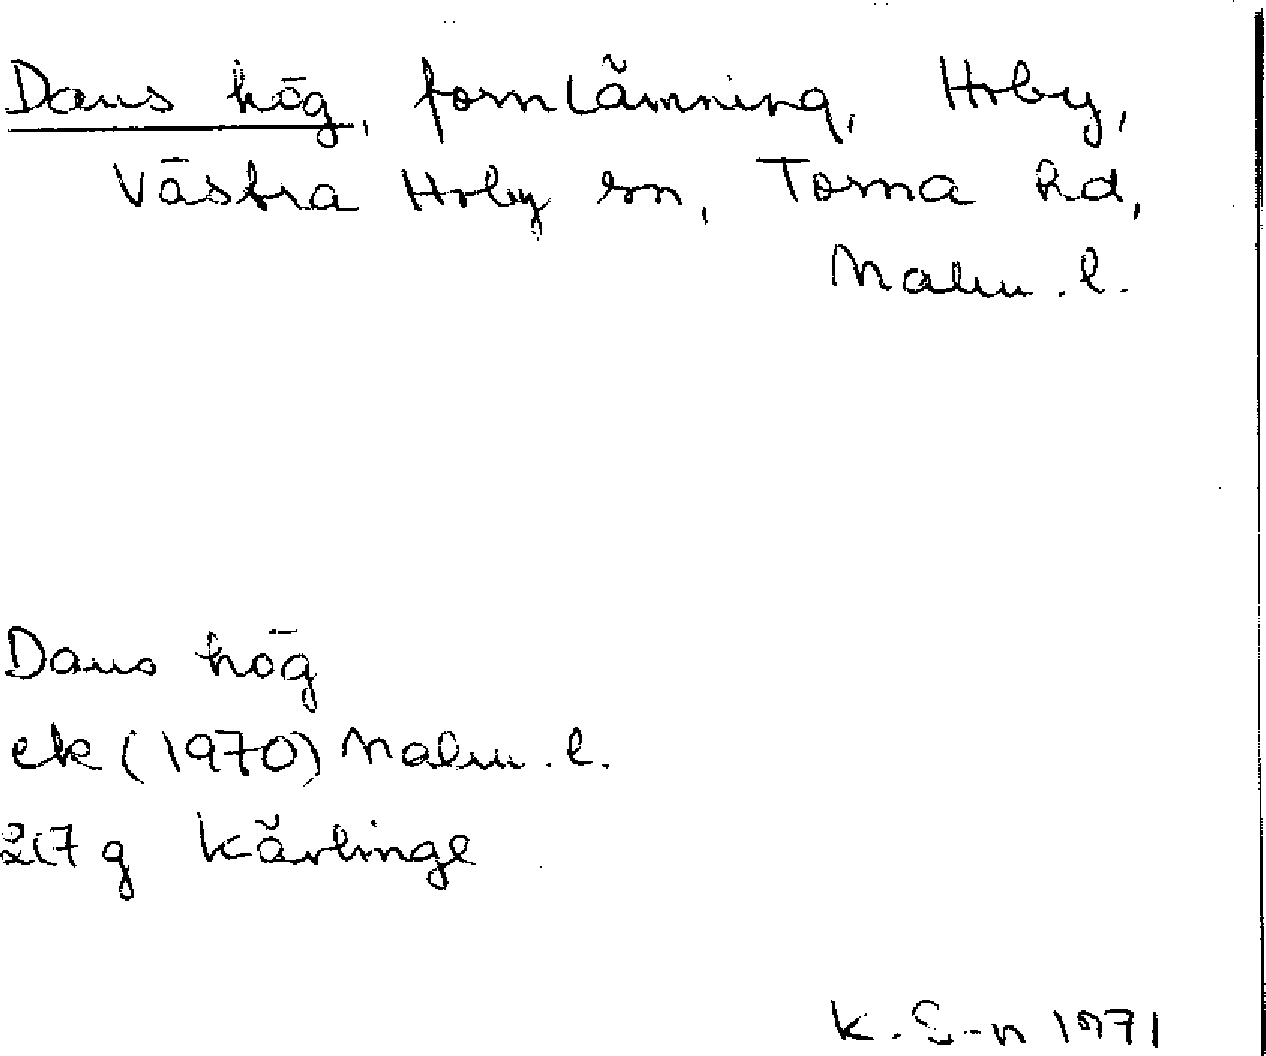 Daus hög, fornlämning, Hoby,
Västra Hoby sn, Torna hd,
Malm. l.
Daus hög
ek (1970) Malm. l.
217 g Kävlinge
K. S-n 1971